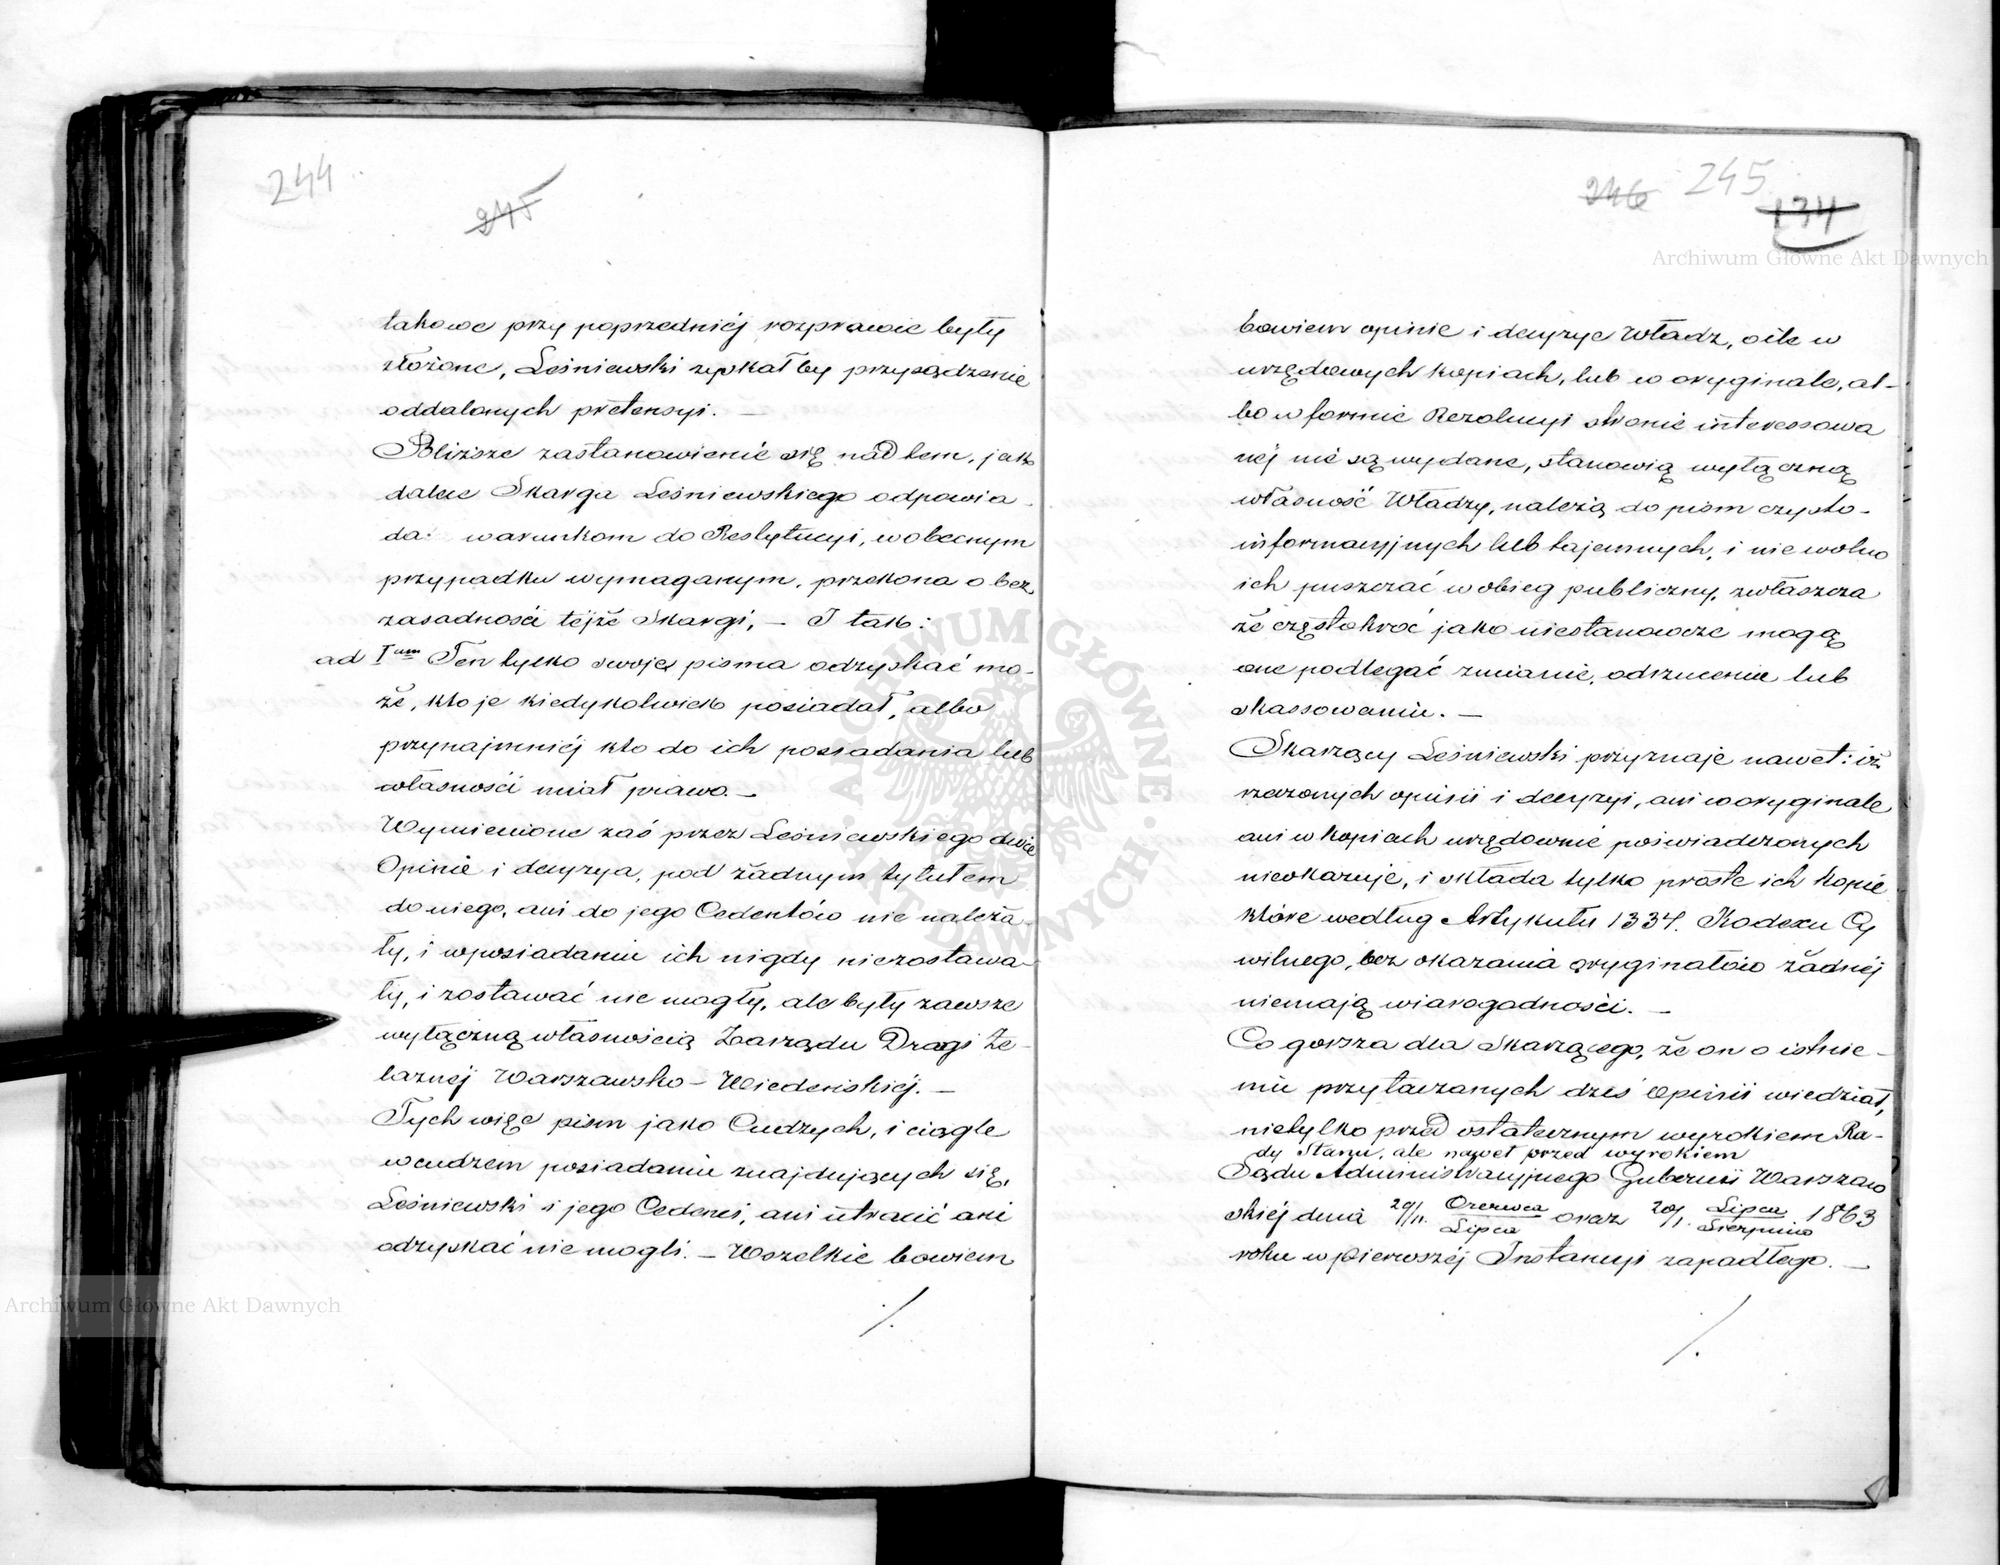 244
245
takowe przy poprzedniéj rozprawie były
złożone, Leśniewski zyskał by przysądzenie
oddalonych pretensyi. —
Bliższe zastanowienie się nad tem, jak
dalece Skarga Leśniewskiego odpowia-
da warunkom do Restytucyi, w obecnym
przypadku wymaganym, przekona o bez
zasadności téjże Skargi, — I tak:
ad Ium Ten tylko swoje pisma odzyskać mo-
że, kto je kiedykolwiek posiadał, albo
przynajmniéj kto do ich posiadania lub
własności miał prawo. —
Wymienione zaś przez Leśniewskiego dwie
Opinie i decyzya, pod żadnym tytułem
do niego, ani do jego Cedentów nie należa-
ły, i w posiadaniu ich nigdy niezostawa-
ły, i zostawać nie mogły, ale były zawsze
wyłączną własnością Zarządu Drogi Że-
laznéj Warszawsko-Wiedeńskiéj. —
Tych więc pism jako Cudzych, i ciągle
w cudzem posiadaniu znajdujących się,
Leśniewski i jego Cedenci, ani utracić ani
odzyskać nie mogli. — Wszelkie bowiem
/.
246 245
134
bowiem opinie i decyzye Władz, o ile w
urzędowych kopiach, lub w oryginale, al-
bo w formie Rezolucyi stronie interessowa
néj nie są wydane, stanowią wyłączną
własność Władzy, należą do pism czysto-
informacyjnych lub tajemnych, i nie wolno
ich puszczać w obieg publiczny, zwłaszcza
że częstokroć jako niestanowcze mogą
one podlegać zmianie, odrzuceniu lub
skassowaniu. —
Skarżący Leśniewski przyznaje nawet: iż
rzeczonych opinii i decyzyi, ani w oryginale
ani w kopiach urzędownie poświadczonych
nieokazuje, i składa tylko proste ich kopie
które według Artykułu 1334. Kodexu Cy
wilnego, bez okazania oryginałów żadnéj
niemają wiarogodności. —
Co gorsza dla Skarżącego, że on o istnie-
niu przytaczanych dziś Opinii wiedział,
nietylko przed ostatecznym wyrokiem Ra-
dy Stanu, ale nawet przed wyrokiem
Sądu Administracyjnego Gubernii Warszaw
skiéj dnia 29/11. Czerwca/Lipca oraz 20/1. Lipca/Sierpnia 1863
roku w pierwszéj Instancyi zapadłego. —
/.
Archiwum Główne Akt Dawnych
Archiwum Główne Akt Dawnych
ARCHIWUM GŁÓWNE AKT DAWNYCH